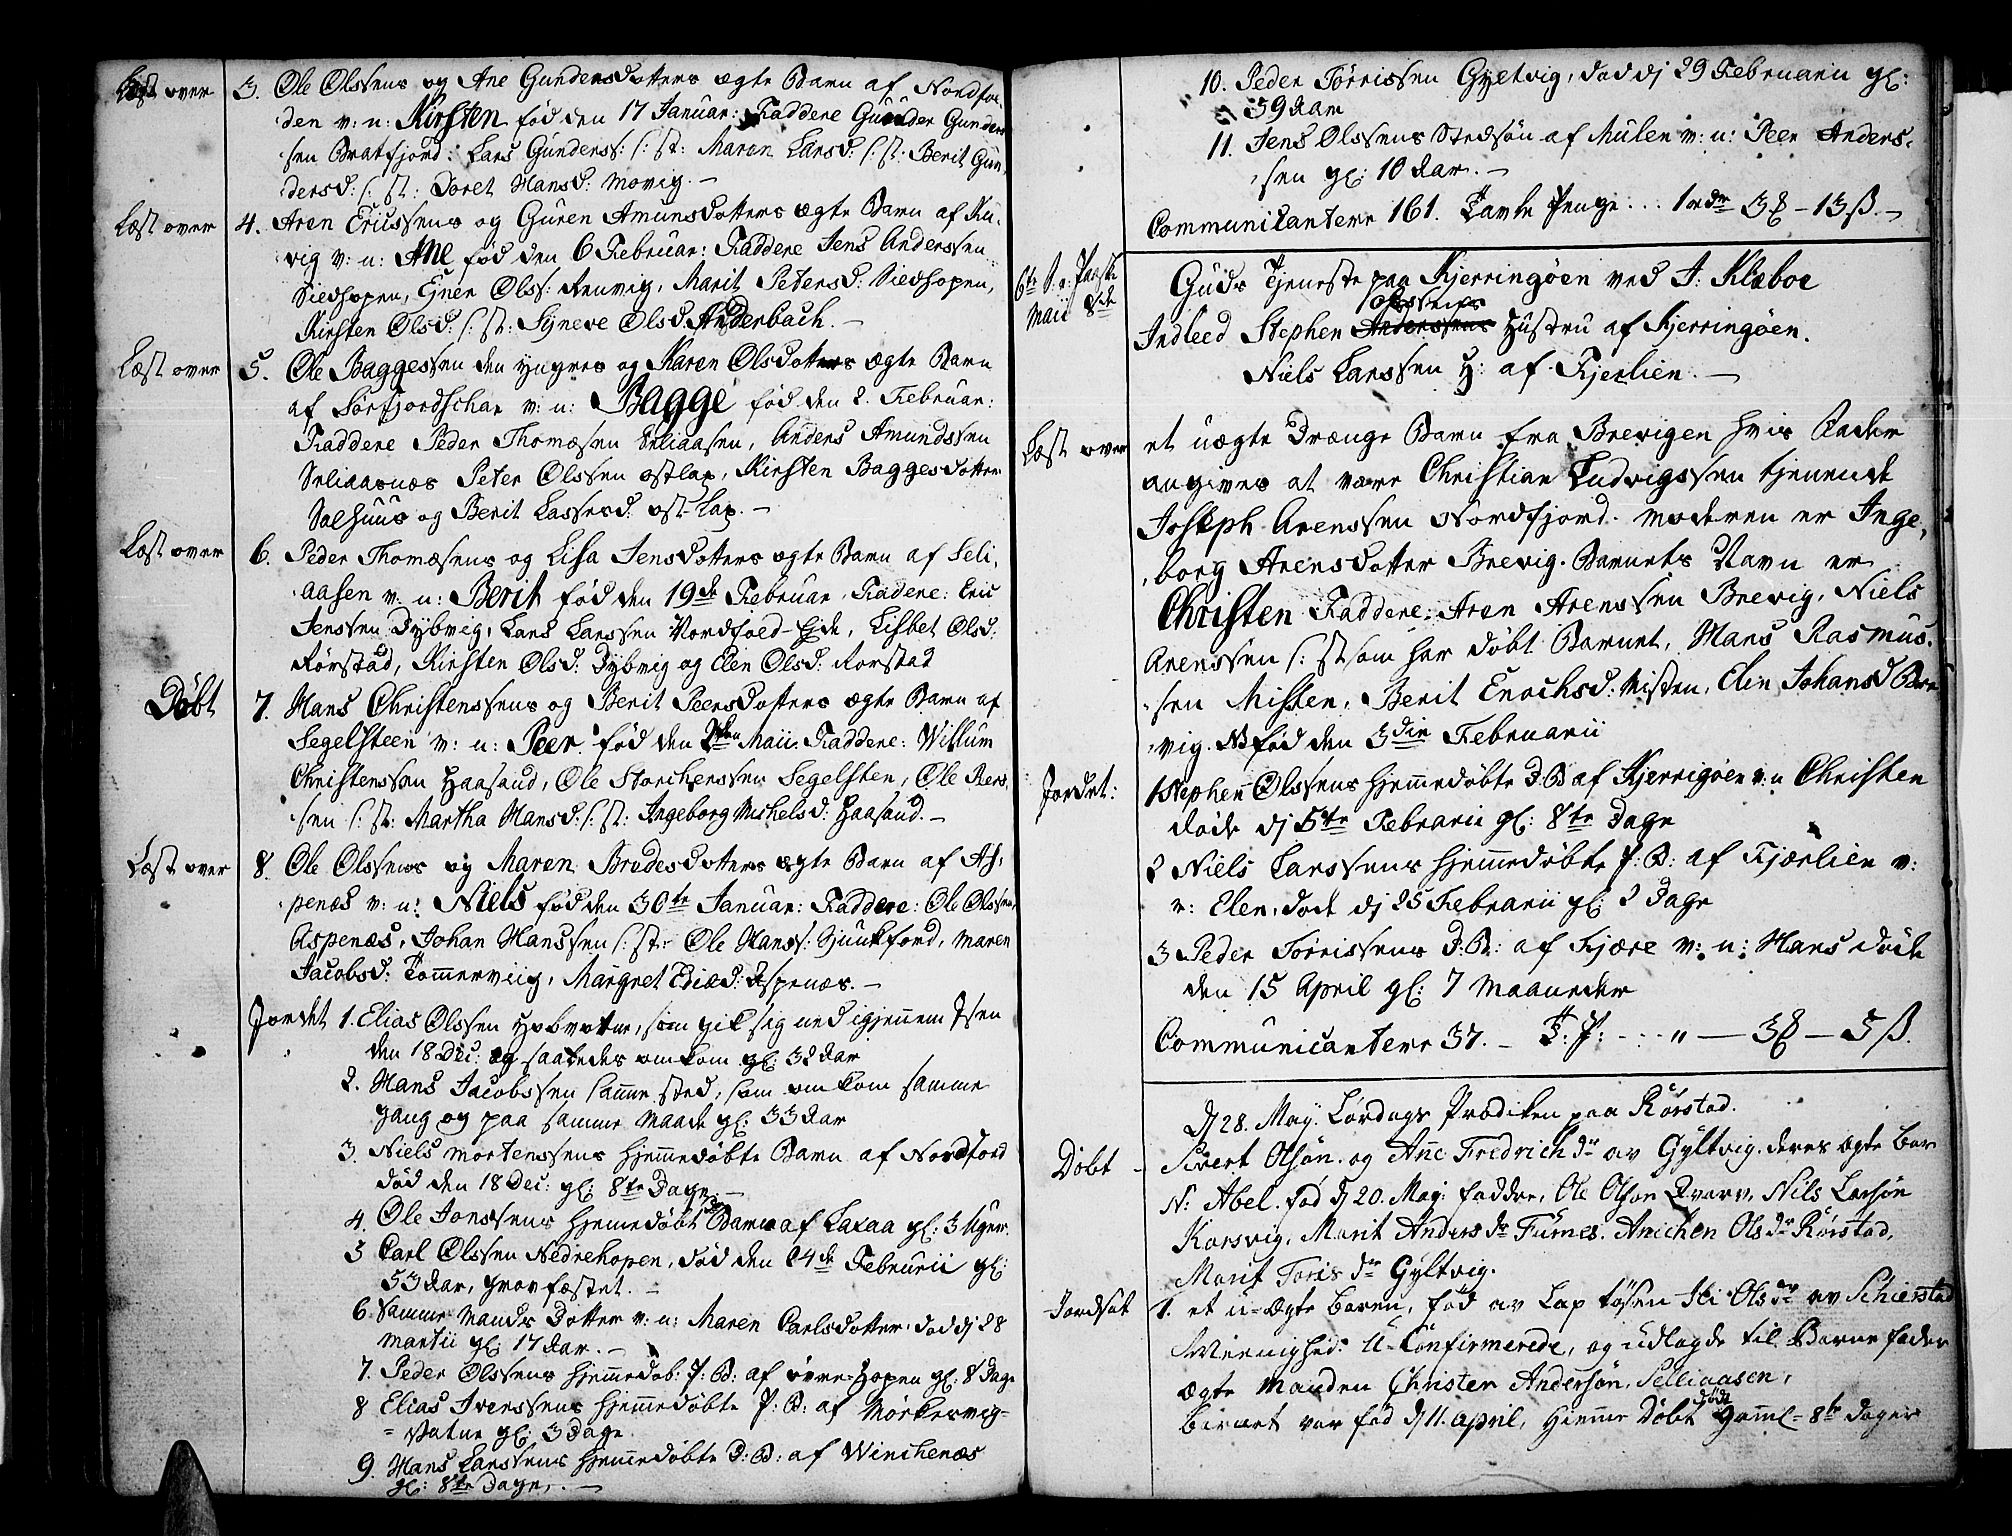 Læst over 3. Ole Olssens og Ane Gundersdotters ægte Barn af Nordfol-
den v: n: Kirsten fød den 17 Januar: Faddere Gunder Gunder-
sen Bratfjord: Lars Gunders: s: st: Maren Larsd: s: st: Berit Gun-
dersd: s: st: Doret Hansd: Movig. —
Læst over 4. Aren Ericssens og Guren Amunsdotters ægte Barn af
vig v: n: Ane fød den 6 Februar: Faddere Jens Anderssen
Siedhopen, Ejner Olss: Renvig, Marit Petersd: Siedhopen,
Kirsten Olsd: s: st: Syneve Olsd. Anderbach. —
Læst over 5. Ole Baggessen den yngres og Karen Olsdotters ægte Barn
af Sørfjordschar v: n: Bagge fød den 2. Februar:
Faddere Peder Thomæsen Seliaasen, Anders Amundssen
Seliaasnes Peter Olssen ostlap, Kirsten Baggesdotter
Salhuus og Berit Lassesd. ost-Lap. —
Læst over 6. Peder Thomæsens og Lisa Jensdotters ægte Barn af Seli-
aasen v: n: Berit fød den 19de Februar. Fadere: Eric
Jenssen Dybvig, Lars Larssen Nordfold-Ejde, Lisbet Olsd:
Rørstad, Kirsten Olsd: Dybvig og Elen Olsd: Rorstad
Døbt 7. Hans Christenssens og Berit Peersdotters ægte Barn af
Segelsteen v: n: Peer. fød den Maii. Faddere: Willum
Christenssøn Haasand, Ole Storchenssen Segelsten, Ole Peers-
sen s: st: Martha Hansd: s: st: Ingeborg Michelsd: Haasand. —
Læst over 8. Ole Olssens og Maren Brodesdotters ægte Barn af As-
penæs v: n: Niels fød den 30te Januar: Faddere: Ole Olssen
Aspenæs, Johan Hanssen s: st: Ole Hanss: Sjunkford, Maren
Jacobsd: Tommerviig, Margret Ediæd: Aspenæs. —
Jordet 1. Elias Olssen Hobvatne, som gik sig ned igjennem Isen
den 18 Dec: og saaledes omkom gl: 32 Aar
2. Hans Jacobssen samme sted, som omkom samme
gang og paa samme Maade gl: 33 Aar
3. Niels Mortenssens hjemmedøbte Barn af Nordford
død den 18 Dec: gl: 8te Dage. —
4. Ole Jonssens hjemedøbt Barn af Laxaa gl: 3 Uger
5 Carl Olssen Nedrehopen, død den 24de Februrii gl:
53 Aar, gravfæstet. —
6. Samme Mands Dotter v: n: Maren Carlsdotter dod dj 28
Martii gl: 17 Aar. —
7. Peder Olssens hjemmedøb: P: B: af øvre-Hopen gl: 8 Dage
8 Elias Iverssens hjemmedøbte P: B: af Mørkesvig-
Vatne gl: 3 Dage.
9. Hans Larssens hjemmedøbte D: B: af Winchenæs
gl: 8te Dage. —
10. Peder Tørrissen Gyltvig, dod dj 29 Februarii gl:
59 Aar
11. Jens Olssens Stedsøn af Mulen v: n: Peer Anders-
sen gl: 10 Aar. —
Communicantere 161. Tavle Penge ... 1 ordr 3 — 13 ß. —
6te S. e: Paaske
Maii 8de
Guds Tjeneste paa Kjerringøen ved J. Klæboe
Olssens
Indleed Stephen Anderssens Hustru af Kjerringøen.
Niels Larssen H: af Fjerlien. —
Læst over et uægte Drænge Barn fra Brevigen hvis Fader
angives at være Christian Ludvigssen tjenende
Joseph Arenssen Nordfjord. Moderen er Inge-
borg Arensdotter Brevig. Barnets Navn er
Christen Faddere: Aren Arenssen Brevig, Niels
Arenssen s: st som har døbt Barnet, Hans Rasmus-
sen Misten, Berit Enochsd: Misten, Elen Johansd Bre-
vig. NB fød den 3die Februarii
Jordet: 1 Stephen Olssens hjemmedøbte D B af Kjerrigøen v: n Christen
døde dj 5te Februarii gl: 8te Dage
2 Niels Larssens hjemmedøbte P: B: af Fjærlien v:
n: Elen, død dj 25 Februarii gl: 2 Dage
3 Peder Torrissens D: B: af Fjære v: n: Hans døde
den 15 April gl: 7 Maaneder
Communicantere 37. — T: P: - - " — 3 — 5 ß.
Dj 28. May. Lørdags Prædiken paa Rørstad.
Døbt Sivert Olsøn. og Ane Fredrichdr av Gyltvig. deres ægte bar
N: Abel. fød dj 20. May. faddre, Ole Olson Qvarv, Nils Larsøn
Korsvig, Marit Andersdr Furnes. Anichen Olsdr Rørstad,
Marit Torisdr Gyltvig.
Jordsat 1. et u-ægte baren, fød av Lap tøsen Ili Olsdr av Schierstad
Almennighed: U-Confirmerede, og udlagde til Barne fader
ægte Manden Christen Andersøn, Selliaasen,
døde
barnet var fød dj 11. april, hjemme døbt Gaml- 8te dager